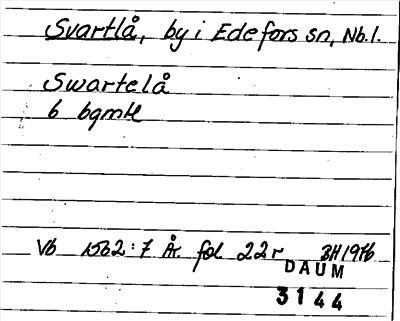 Svartlå, by i Edefors sn, Nb.l.
Swartelå
6 bgmtl
Vb 1562:7 År. fol 22r BH 1976
DAUM
3144